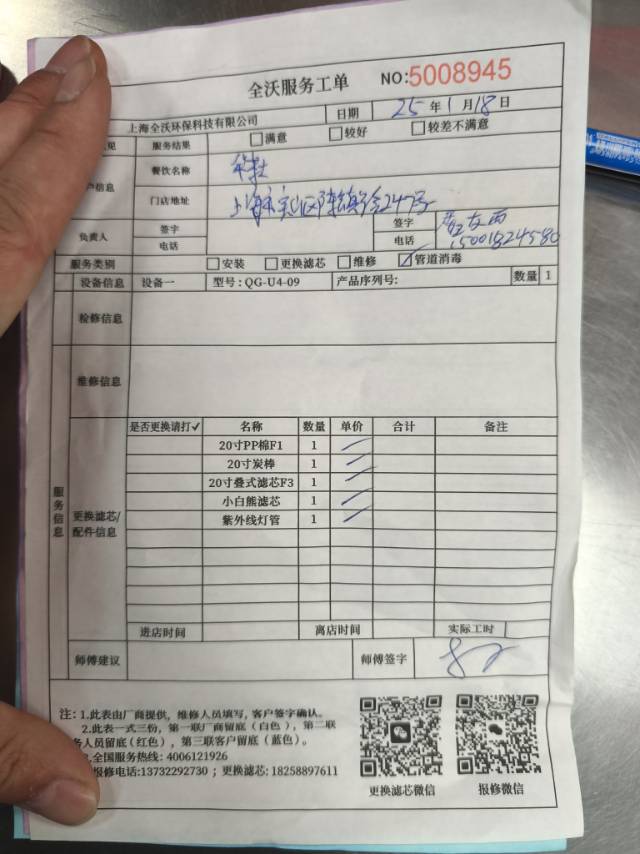 全沃服务工单 NO:5008945
上海全沃环保科技有限公司 日期 25年1月18日
见 服务结果 满意 较好 较差不满意
户信息 餐饮名称
门店地址 247号
负责人 签字 签字
电话 电话 15001824580
服务类别 安装 更换滤芯 维修 管道消毒
设备信息 设备一 型号:QG-U4-09 产品序列号: 数量 1
检修信息
维修信息
服务信息
更换滤芯/配件信息
是否更换请打✓ 名称 数量 单价 合计 备注
20寸PP棉F1 1
20寸炭棒 1
20寸叠式滤芯F3 1
小白熊滤芯 1
紫外线灯管 1
进店时间 离店时间 实际工时
师傅建议 师傅签字
注: 1.此表由厂商提供，维修人员填写，客户签字确认。
2.此表一式三份，第一联厂商留底(白色)，第二联
务人员留底(红色)，第三联客户留底(蓝色)。
.全国服务热线: 4006121926
报修电话:13732292730；更换滤芯: 18258897611
更换滤芯微信 报修微信